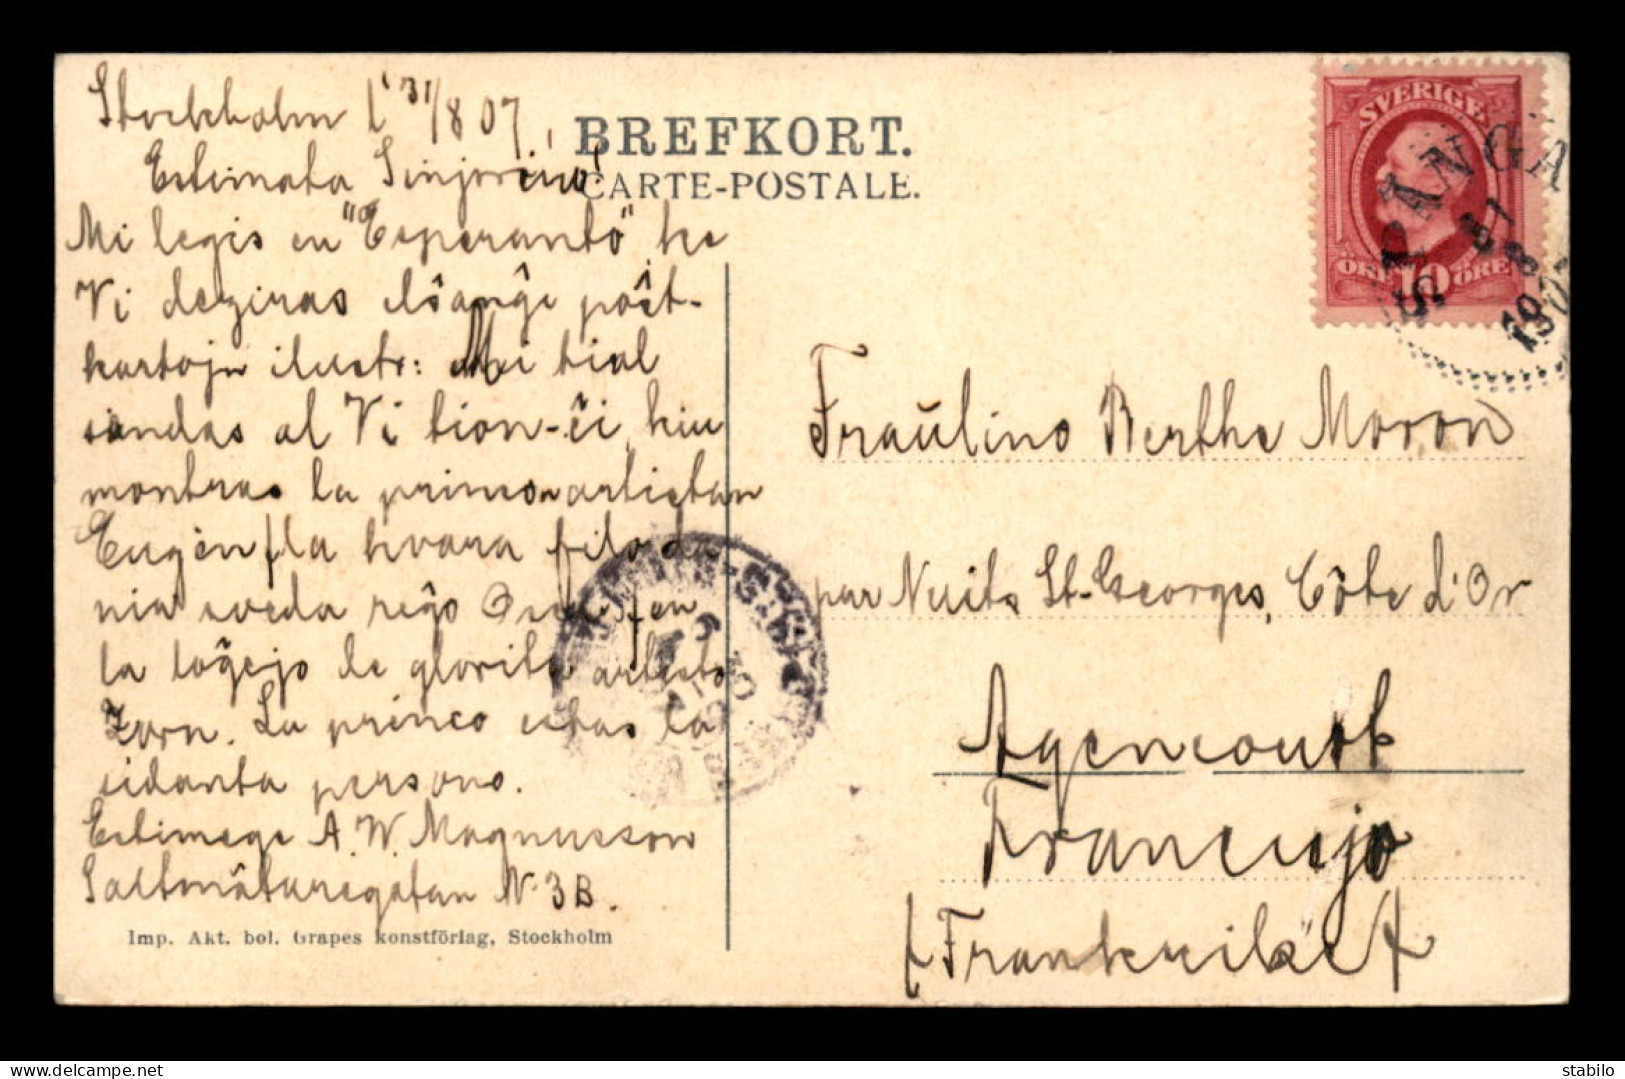 Stockholm l' 31/8 07.
Estimata Sinjorino!
Mi legis en "Esperanto" ke
Vi deziras ilŝanĝe poŝt-
kartojn ilustr: Mi tial
sendas al Vi tion-ĉi kiu
montras la princon artistan
Eugèn /la kvara filo da
nia sveda reĝo Oscar/ en
la loĝejo de glorita artisto
Zorn. La princo estas la
sidanta persono.
Estimege A. W. Magnusson
Saltmätaregatan N. 3B.
Imp. Akt. bol. Grapes konstförlag, Stockholm
BREFKORT.
CARTE-POSTALE.
SVERIGE
ÖRE 10 ÖRE
SPÅNGA
31
8
1907
Fraŭlino Berthe Moron
par Nuits St-Georges, Côte d'Or
Agencourt
Francujo
/Frankrike/
delcampe.net
stabilo